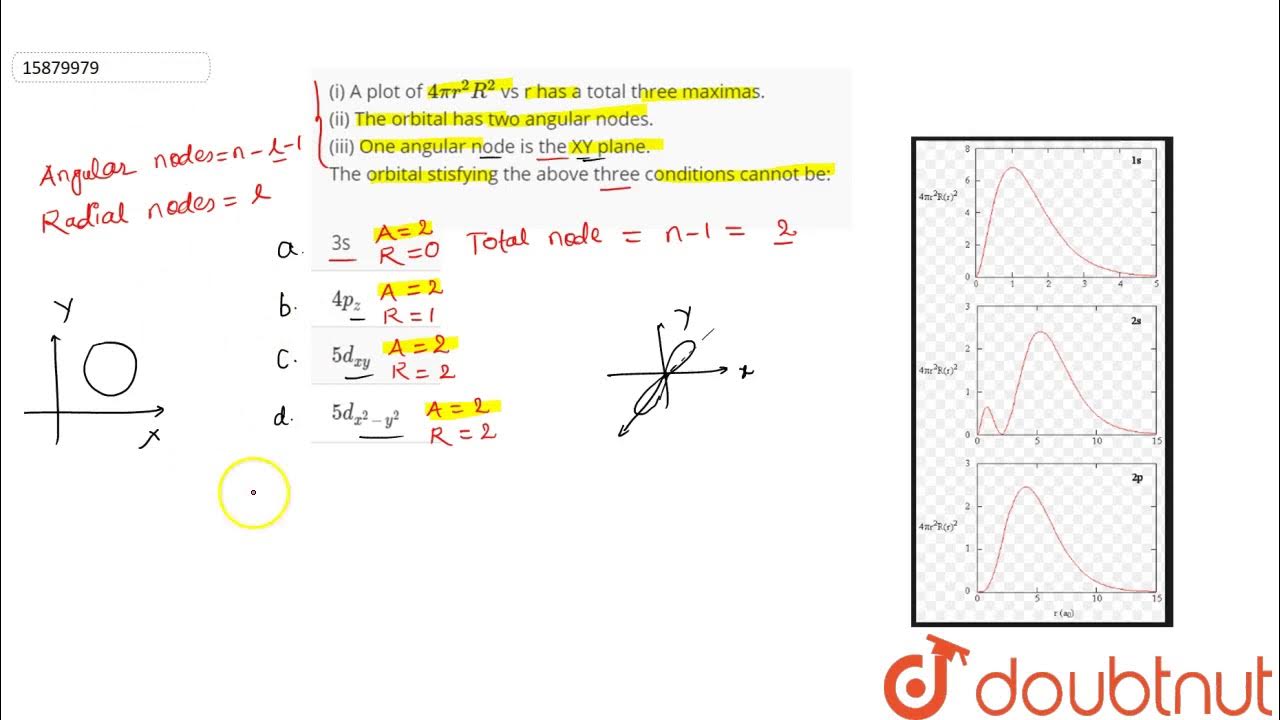 15879979
(i) A plot of 4πr²R² vs r has a total three maximas.
(ii) The orbital has two angular nodes.
(iii) One angular node is the XY plane.
The orbital stisfying the above three conditions cannot be:
Angular nodes=n-l-1
Radial nodes = l
a. 3s A=2
R=0
Total node = n-1 = 2
b. 4p_z A=2
R=1
c. 5d_xy A=2
R=2
d. 5d_x²-y² A=2
R=2
Y
X
Y
x
1s
4πr²R(r)²
8
6
4
2
0
0 1 2 3 4 5
2s
4πr²R(r)²
3
2
1
0
0 5 10 15
2p
4πr²R(r)²
3
2
1
0
0 5 10 15
r (a₀)
doubtnut